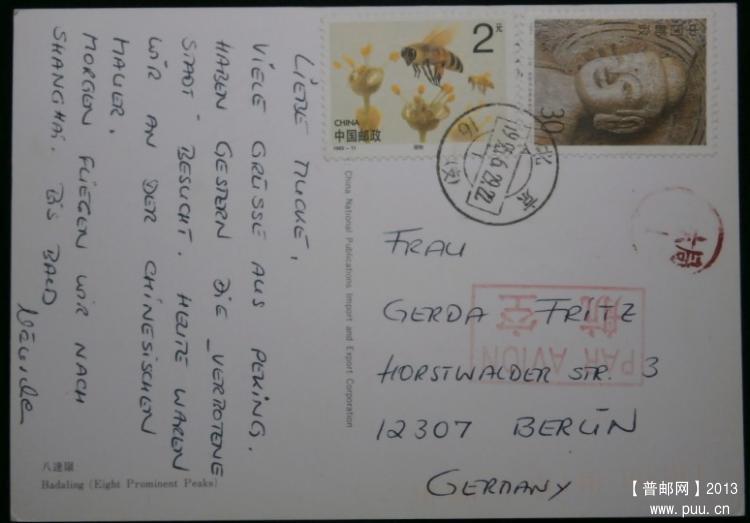 LIEBE MUCKE,
VIELE GRÜSSE AUS PEKING.
HABEN GESTERN DIE „VERBOTENE
STADT" BESUCHT. HEUTE WAREN
WIR AN DER CHINESISCHEN
MAUER.
MORGEN FLIEGEN WIR NACH
SHANGHAI. BIS BALD
八達嶺
Badaling (Eight Prominent Peaks)
China National Publications Import and Export Corporation
2元
CHINA
中国邮政
中国邮政
30
北京
PAR AVION
航空
FRAU
GERDA FRITZ
HORSTWALDER STR. 3
12307 BERLIN
GERMANY
【普邮网】2013
www.puu.cn